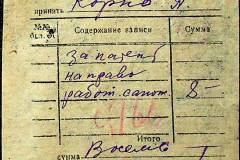 принять Корно А.
№№ Содержание записи Сумма
За патент
на право
работ. сапож. 8-
Итого
сумма Восемь